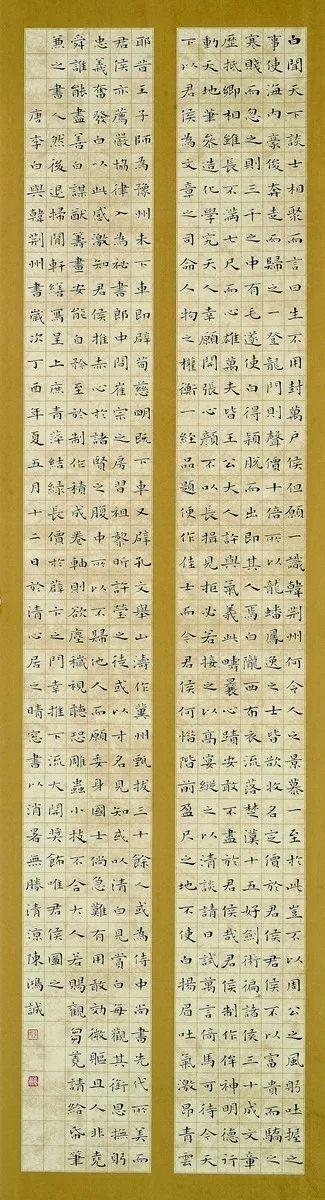 白聞天下談士相聚而言曰生不用封萬戶侯但願一識韓荊州何令人之景慕一至於此豈不以周公之風躬吐握之
事使海內豪俊奔走而歸之一登龍門則聲價十倍所以龍蟠鳳逸之士皆欲收名定價於君侯君侯不以富貴而驕之
寒賤而忽之則三千之中有毛遂使白得穎脫而出即其人焉白隴西布衣流落楚漢十五好劍術徧諸侯三十成文章
歷抵卿相雖長不滿七尺而心雄萬夫皆王公大人許與氣義此疇曩心跡安敢不盡於君侯哉君侯制作侔神明德行
動天地筆參造化學究天人幸願開張心顏不以長揖見拒必若接之以高宴縱之以清談請日試萬言倚馬可待今天
下以君侯為文章之司命人物之權衡一經品題便作佳士而今君侯何惜階前盈尺之地不使白揚眉吐氣激昂青雲
耶昔王子師為豫州未下車即辟荀慈明既下車又辟孔文舉山濤作冀州甄拔三十餘人或為侍中尚書先代所美而
君侯亦薦嚴協律入為秘書郎中間崔宗之房習祖黎昕許瑩之徒或以才名見知或以清白見賞白每觀其銜恩撫躬
忠義奮發白以此感激知君侯推赤心於諸賢之腹中所以不歸他人而願委身國士倘急難有用敢效微軀且人非堯
舜誰能盡善白謀猷籌畫安能自矜至於制作積成卷軸則欲塵穢視聽恐雕蟲小技不合大人若賜觀芻蕘請給帋筆
兼之書人然後退掃閒軒繕寫呈上庶青萍結綠長價於薛卞之門幸推下流大開獎飾唯君侯圖之
唐李白與韓荊州書歲次丁酉年夏五月十二日於清心居之晴窗書以消暑無勝清涼陳鴻誠